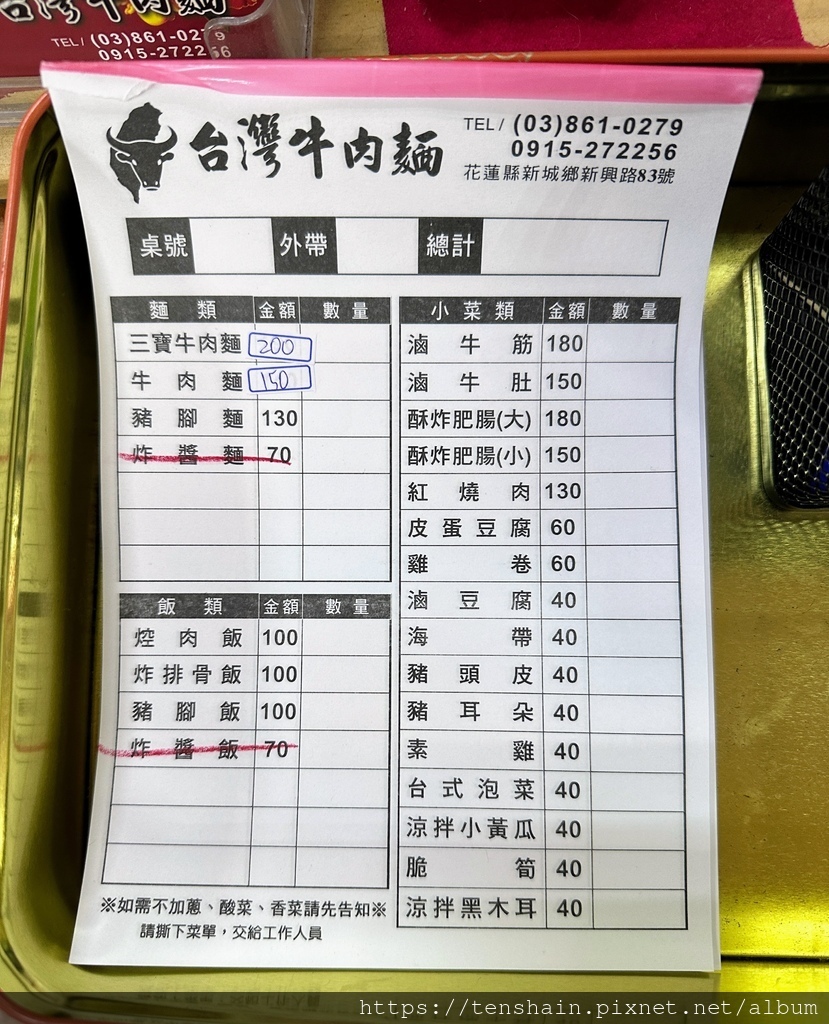 台灣牛肉麵
TEL/ (03)861-0279
0915-272256
台灣牛肉麵
TEL/ (03)861-0279
0915-272256
花蓮縣新城鄉新興路83號
桌號 外帶 總計
麵類 金額 數量
三寶牛肉麵 200
牛肉麵 150
豬腳麵 130
炸醬麵 70
飯類 金額 數量
焢肉飯 100
炸排骨飯 100
豬腳飯 100
炸醬飯 70
小菜類 金額 數量
滷牛筋 180
滷牛肚 150
酥炸肥腸(大) 180
酥炸肥腸(小) 150
紅燒肉 130
皮蛋豆腐 60
雞卷 60
滷豆腐 40
海帶 40
豬頭皮 40
豬耳朵 40
素雞 40
台式泡菜 40
涼拌小黃瓜 40
脆筍 40
涼拌黑木耳 40
※如需不加蔥、酸菜、香菜請先告知※
請撕下菜單，交給工作人員
https://tenshain.pixnet.net/album